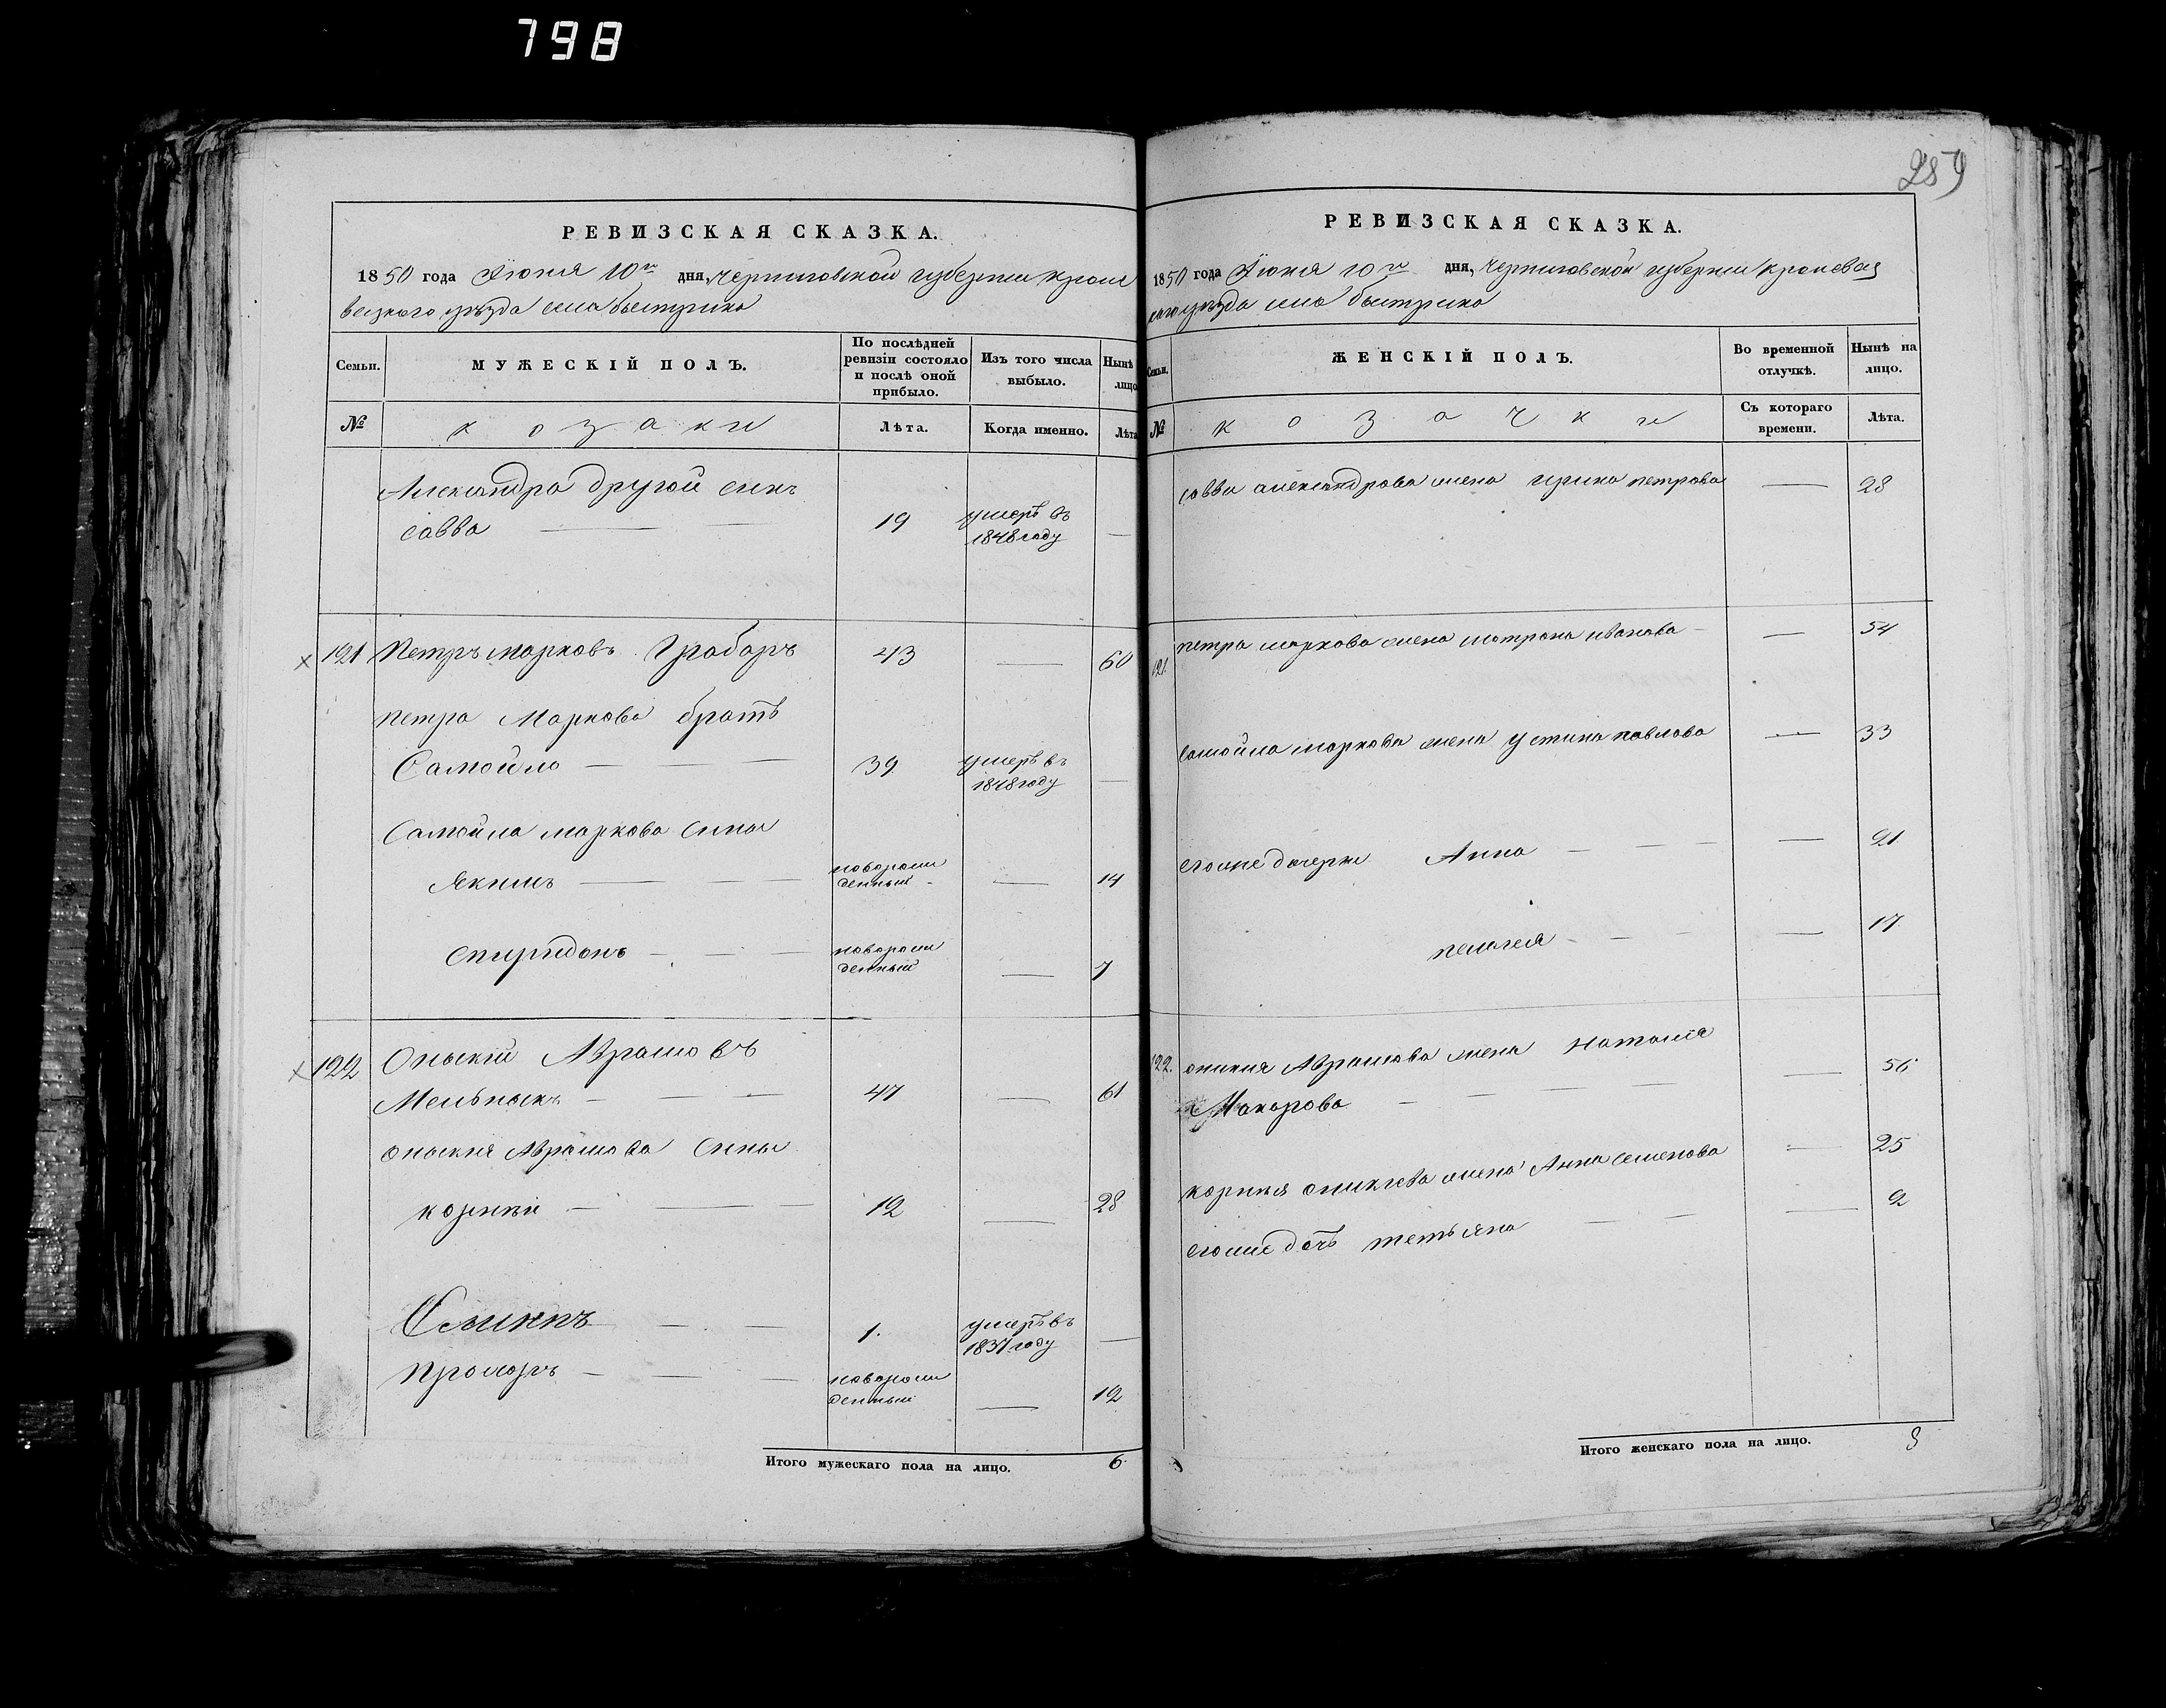 798
РЕВИЗСКАЯ СКАЗКА.
1850 года Июня 10го дня, Черниговской губернии Кроле
вецкого уезда села быстрика
Семьи.
МУЖЕСКІЙ ПОЛЪ.
По послѣдней ревизіи состояло и послѣ оной прибыло.
Изъ того числа выбыло.
Нынѣ лицо
№
козаки
Лѣта.
Когда именно.
Лѣта
Александра другой сынъ
савва 19 умеръ въ
1848 году
121 Петръ марковъ Грабаръ 43 60
петра Маркова братъ
Самойло 39 умеръ въ
1848 году
Самойла маркова сыны
Якимъ новорож
денный 14
спиридонъ новорож
денный 7
122 Оныкій Аврамовъ
Мельныкъ 47 61
оныкия Аврамова сыны
корнѣй 12 28
1. умеръ въ
1837 году
прохоръ новорож
денный 12
Итого мужескаго пола на лицо. 6.
289
РЕВИЗСКАЯ СКАЗКА.
1850 года Июня 10го дня, Черниговской губернии кролевец
кого уезда села быстрика
Семьи.
ЖЕНСКІЙ ПОЛЪ.
Во временной отлучкѣ.
Нынѣ на лицо.
№
козачки
Съ котораго времени.
Лѣта.
саввы александрова жена ирина петрова 28
121. петра маркова жена матрона иванова 54
самойла маркова жена устина павлова 33
егоже дочери Анна 21
пелагея 17
122. оникия Аврамова жена Наталія
Макарова 56
корнѣя оникиева жена Анна семенова 25
егоже дочь тетьяна 2
Итого женскаго пола на лицо. 8